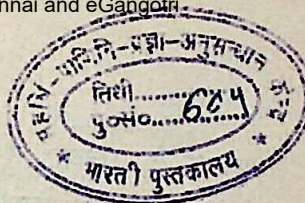 nnai and eGangotri
महर्षि-पाणिनि-प्रज्ञा-अनुसन्धान केन्द्र
तिथी..........
पु०सं०.......... ६८५
* भारती पुस्तकालय *